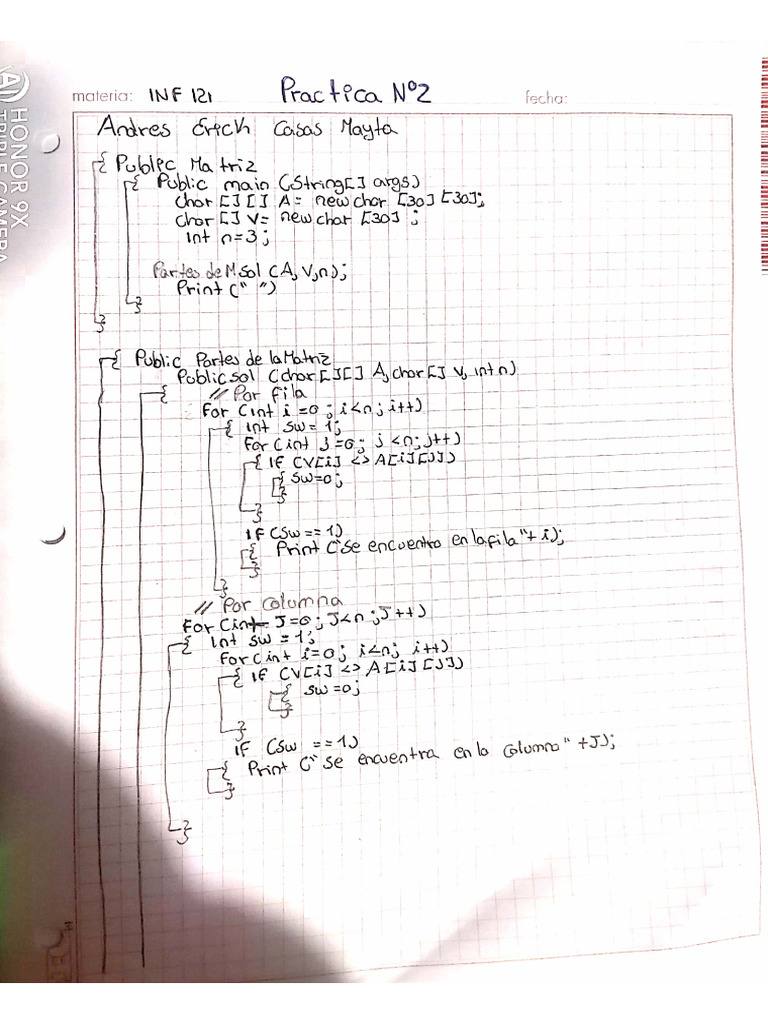 materia: INF 121 Practica Nº2 fecha:
Andres Erick Casas Mayta
{ Public Matriz
{ Public main (String[] args)
char [][] A= new char [30][30];
char [] V= new char [30] ;
int n=3;
Partes de M sol (A,V,n);
Print (" ")
}
}
{ Public Partes de la Matriz
Public sol (char[][] A, char[] V, int n)
{ // Por fila
For (int i=0; i<n; i++)
{ int sw=1;
For (int J=0; J<n; J++)
{ IF (V[i] <> A[i][J])
{ sw=0;
}
}
IF (sw==1)
{ Print ("se encuentra en la fila"+ i);
}
}
// Por columna
For (int J=0; J<n; J++)
{ Int sw=1;
For (int i=0; i<n; i++)
{ IF (V[i] <> A[i][J])
{ sw=0;
}
}
IF (sw ==1)
{ Print ("se encuentra en la columna" +J);
}
}
HONOR 9X
TRIPLE CAMERA